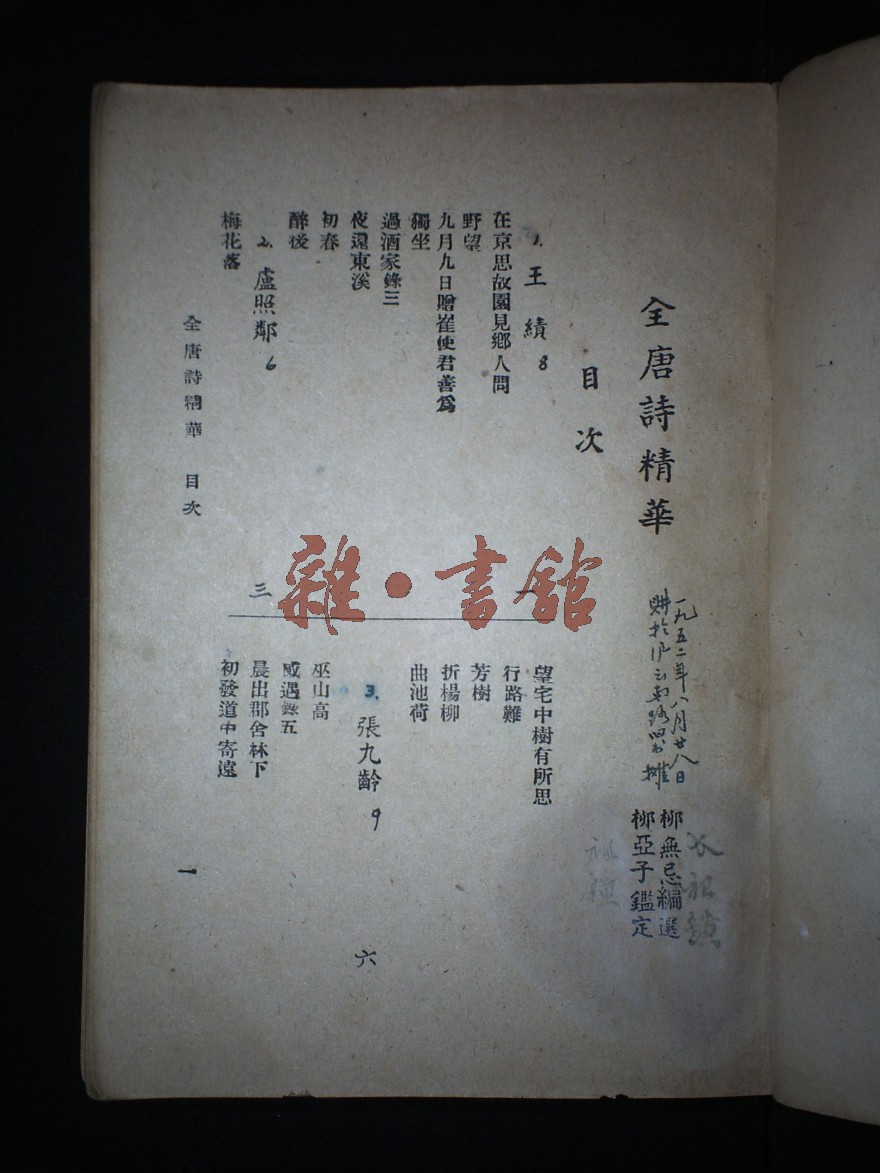 全唐詩精華
一九五二年八月廿八日
柳無忌編選
柳亞子鑑定
目次
1. 王績 8
一
在京思故園見鄉人問
野望
九月九日贈崔使君善為
獨坐
過酒家錄三
夜還東溪
初春
醉後
2. 盧照鄰 6
三
梅花落
望宅中樹有所思
行路難
芳樹
折楊柳
曲池荷
3. 張九齡 9
六
巫山高
感遇錄五
晨出郡舍林下
初發道中寄遠
全唐詩精華 目次
一
雜·書館